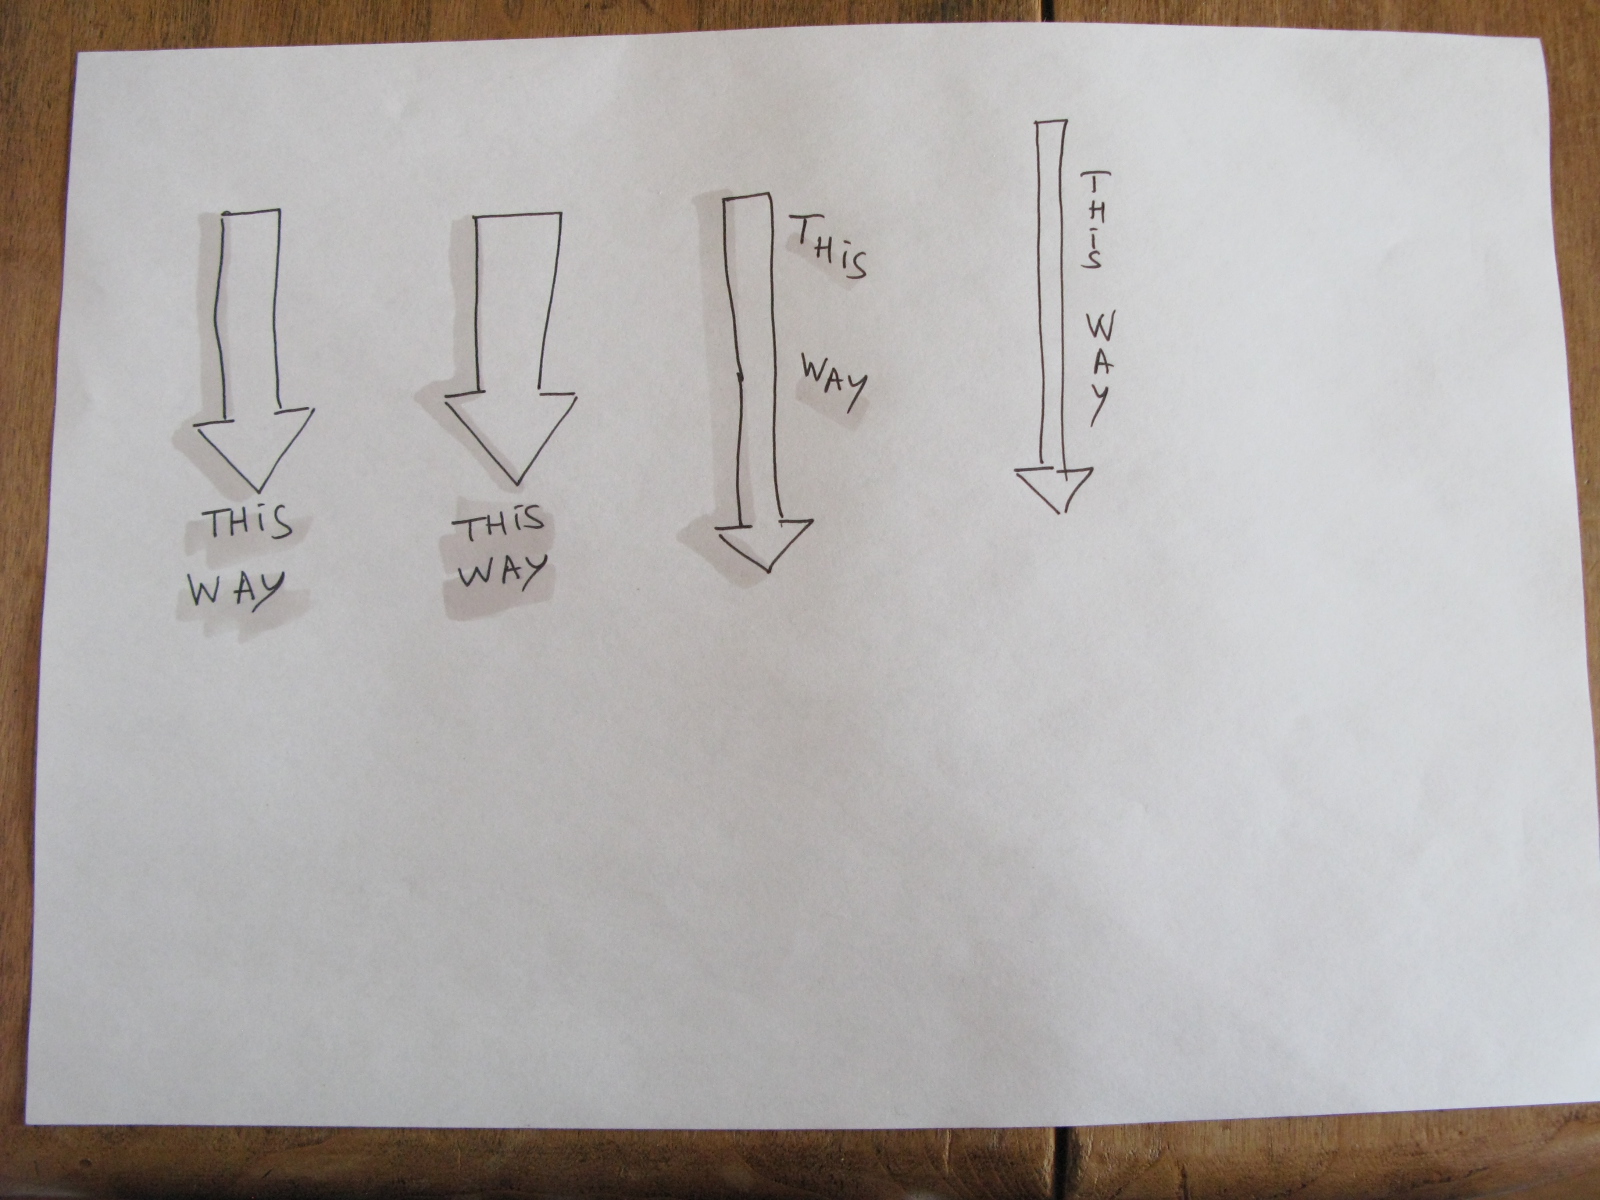 THiS
WAY
THiS
WAY
THiS
WAY
THiS WAY